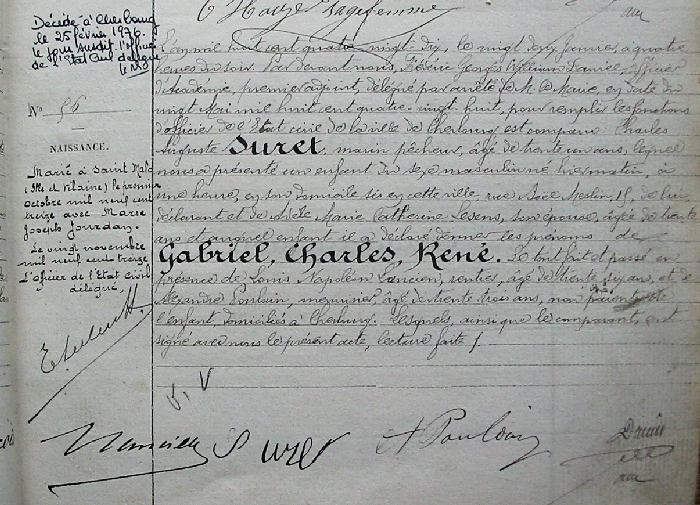 Sagefemme
Décédé à Cherbourg
le 25 février 1976.
le jour susdit. l'officier
de l'Etat Civil délégué
N° 56
NAISSANCE.
Marié à Saint Malo
(Ille et Vilaine) le premier
octobre mil neuf cent
treize avec Marie
Joseph Jourdan.
Le vingt novembre
mil neuf cent treize
L'officier de l'Etat Civil
délégué,
L'an mil huit cent quatre-vingt-dix, le vingt deux janvier, à quatre
heures du soir. Par devant nous, Frédéric Georges officier
d'académie, premier adjoint, délégué par arrêté de M. le Maire, en date du
vingt Mai mil huit cent quatre-vingt-huit, pour remplir les fonctions
d'officier de l'Etat civil de la ville de Cherbourg est comparu Charles
Auguste Suret, marin pêcheur, âgé de trente un ans, lequel
nous a présenté un enfant du sexe masculin né hier matin, à
une heure, en son domicile sis en cette ville, rue 15, de lui
déclarant et de Marie Catherine son épouse, âgée de trente
ans et auquel enfant il a déclaré donner les prénoms de
Gabriel, Charles, René. Le tout fait et passé en
présence de Louis Napoléon rentier, âgé de trente six ans, et de
Alexandre Poulain, menuisier, âgé de trente trois ans, non parents de
l'enfant, domiciliés à Cherbourg. Lesquels, ainsi que le comparant, ont
signé avec nous le présent acte, lecture faite /.
Suret
A Poulain